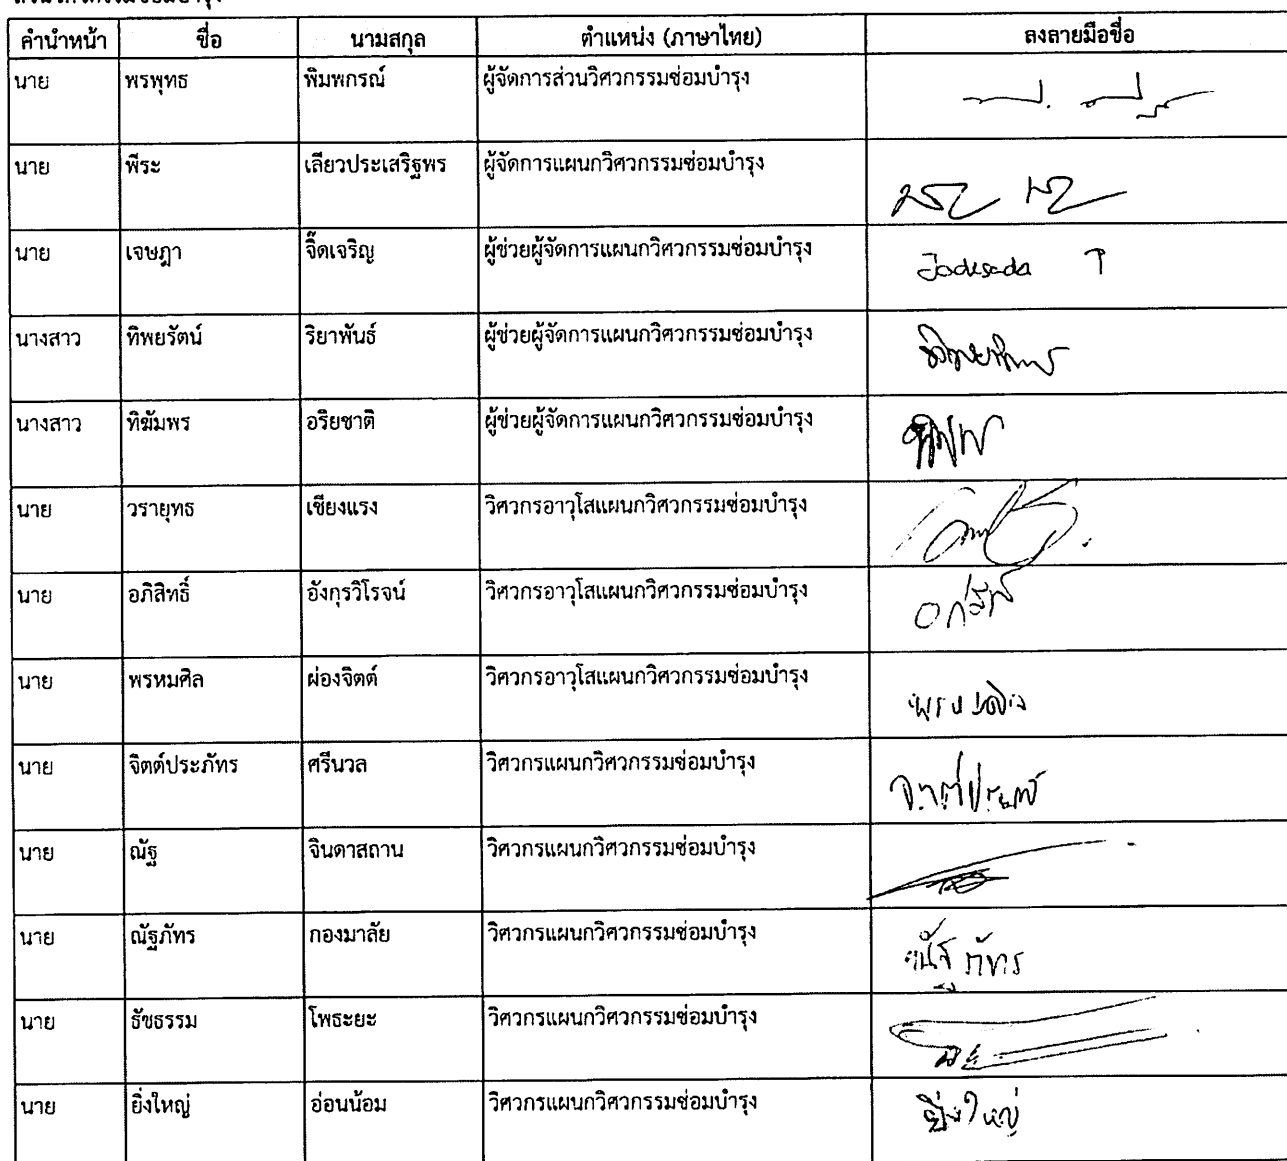 คำนำหน้า ชื่อ นามสกุล ตำแหน่ง (ภาษาไทย) ลงลายมือชื่อ
นาย พรพุทธ พิมพกรณ์ ผู้จัดการส่วนวิศวกรรมซ่อมบำรุง
นาย พีระ เลียวประเสริฐพร ผู้จัดการแผนกวิศวกรรมซ่อมบำรุง
นาย เจษฎา จิ๊ดเจริญ ผู้ช่วยผู้จัดการแผนกวิศวกรรมซ่อมบำรุง
นางสาว ทิพยรัตน์ ริยาพันธ์ ผู้ช่วยผู้จัดการแผนกวิศวกรรมซ่อมบำรุง
นางสาว ทิฆัมพร อริยชาติ ผู้ช่วยผู้จัดการแผนกวิศวกรรมซ่อมบำรุง
นาย วรายุทธ เชียงแรง วิศวกรอาวุโสแผนกวิศวกรรมซ่อมบำรุง
นาย อภิสิทธิ์ อังกุรวิโรจน์ วิศวกรอาวุโสแผนกวิศวกรรมซ่อมบำรุง
นาย พรหมศิล ผ่องจิตต์ วิศวกรอาวุโสแผนกวิศวกรรมซ่อมบำรุง
นาย จิตต์ประภัทร ศรีนวล วิศวกรแผนกวิศวกรรมซ่อมบำรุง
นาย ณัฐ จินดาสถาน วิศวกรแผนกวิศวกรรมซ่อมบำรุง
นาย ณัฐภัทร กองมาลัย วิศวกรแผนกวิศวกรรมซ่อมบำรุง ณัฐภัทร
นาย ธัชธรรม โพธะยะ วิศวกรแผนกวิศวกรรมซ่อมบำรุง
นาย ยิ่งใหญ่ อ่อนน้อม วิศวกรแผนกวิศวกรรมซ่อมบำรุง ยิ่งใหญ่